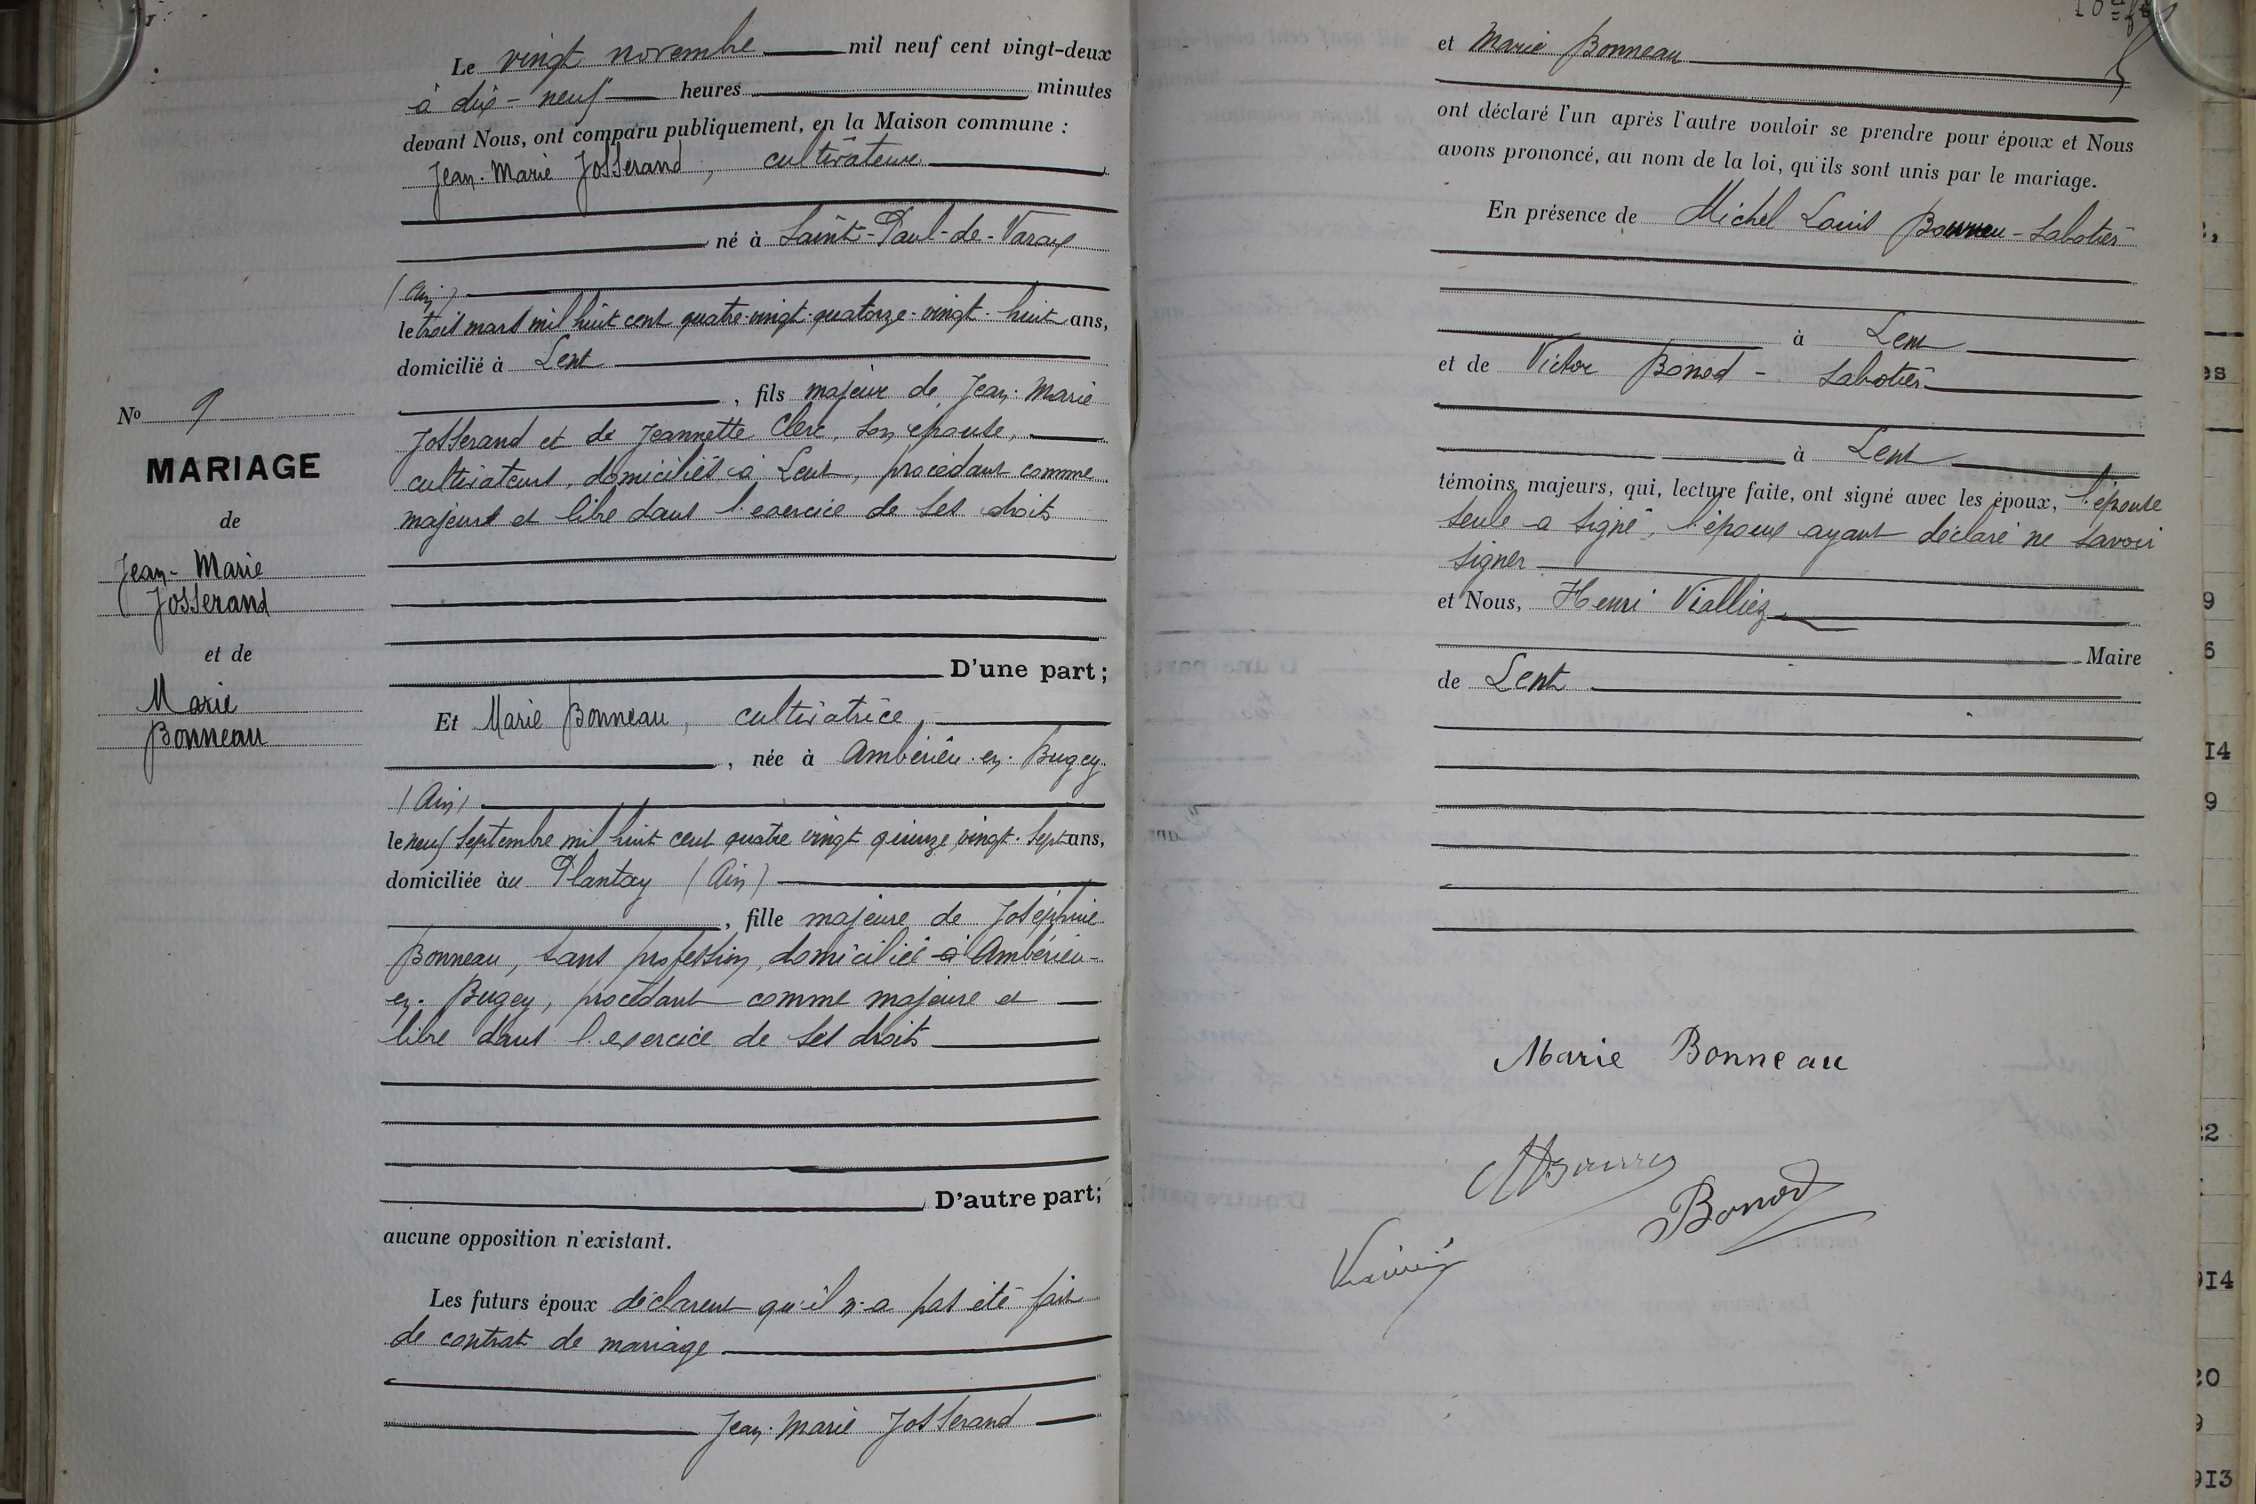 Le vingt novembre mil neuf cent vingt-deux
à dix-neuf heures minutes
devant Nous, ont comparu publiquement, en la Maison commune :
Jean-Marie Josserand, cultivateur
né à Saint-Paul-de-Varax
(Ain)
le trois mars mil huit cent quatre-vingt-quatorze-vingt-huit ans,
domicilié à Lent
, fils majeur de Jean-Marie
Josserand et de Jeannette Clerc, son épouse,
cultivateurs, domiciliés à Lent, procédant comme
majeur et libre dans l'exercice de ses droits
D'une part ;
Et Marie Bonneau, cultivatrice,
, née à Ambérieu-en-Bugey
(Ain)
le neuf septembre mil huit cent quatre vingt quinze, vingt-sept ans,
domiciliée au Plantay (Ain)
, fille majeure de Joséphine
Bonneau, sans profession, domiciliée à Ambérieu-
en-Bugey, procédant comme majeure et
libre dans l'exercice de ses droits
D'autre part;
aucune opposition n'existant.
Les futurs époux déclarent qu'il n'a pas été fait
de contrat de mariage
Jean-Marie Josserand
No 9
MARIAGE
de
Jean-Marie
Josserand
et de
Marie
Bonneau
et Marie Bonneau
ont déclaré l'un après l'autre vouloir se prendre pour époux et Nous
avons prononcé, au nom de la loi, qu'ils sont unis par le mariage.
En présence de Michel Louis - Sabotier
à Lent
et de Victor Bonod - Sabotier
à Lent
témoins majeurs, qui, lecture faite, ont signé avec les époux, l'épouse
seule a signé, l'époux ayant déclaré ne savoir
signer
et Nous, Henri Vialliez
Maire
de Lent
Marie Bonneau
Bonod